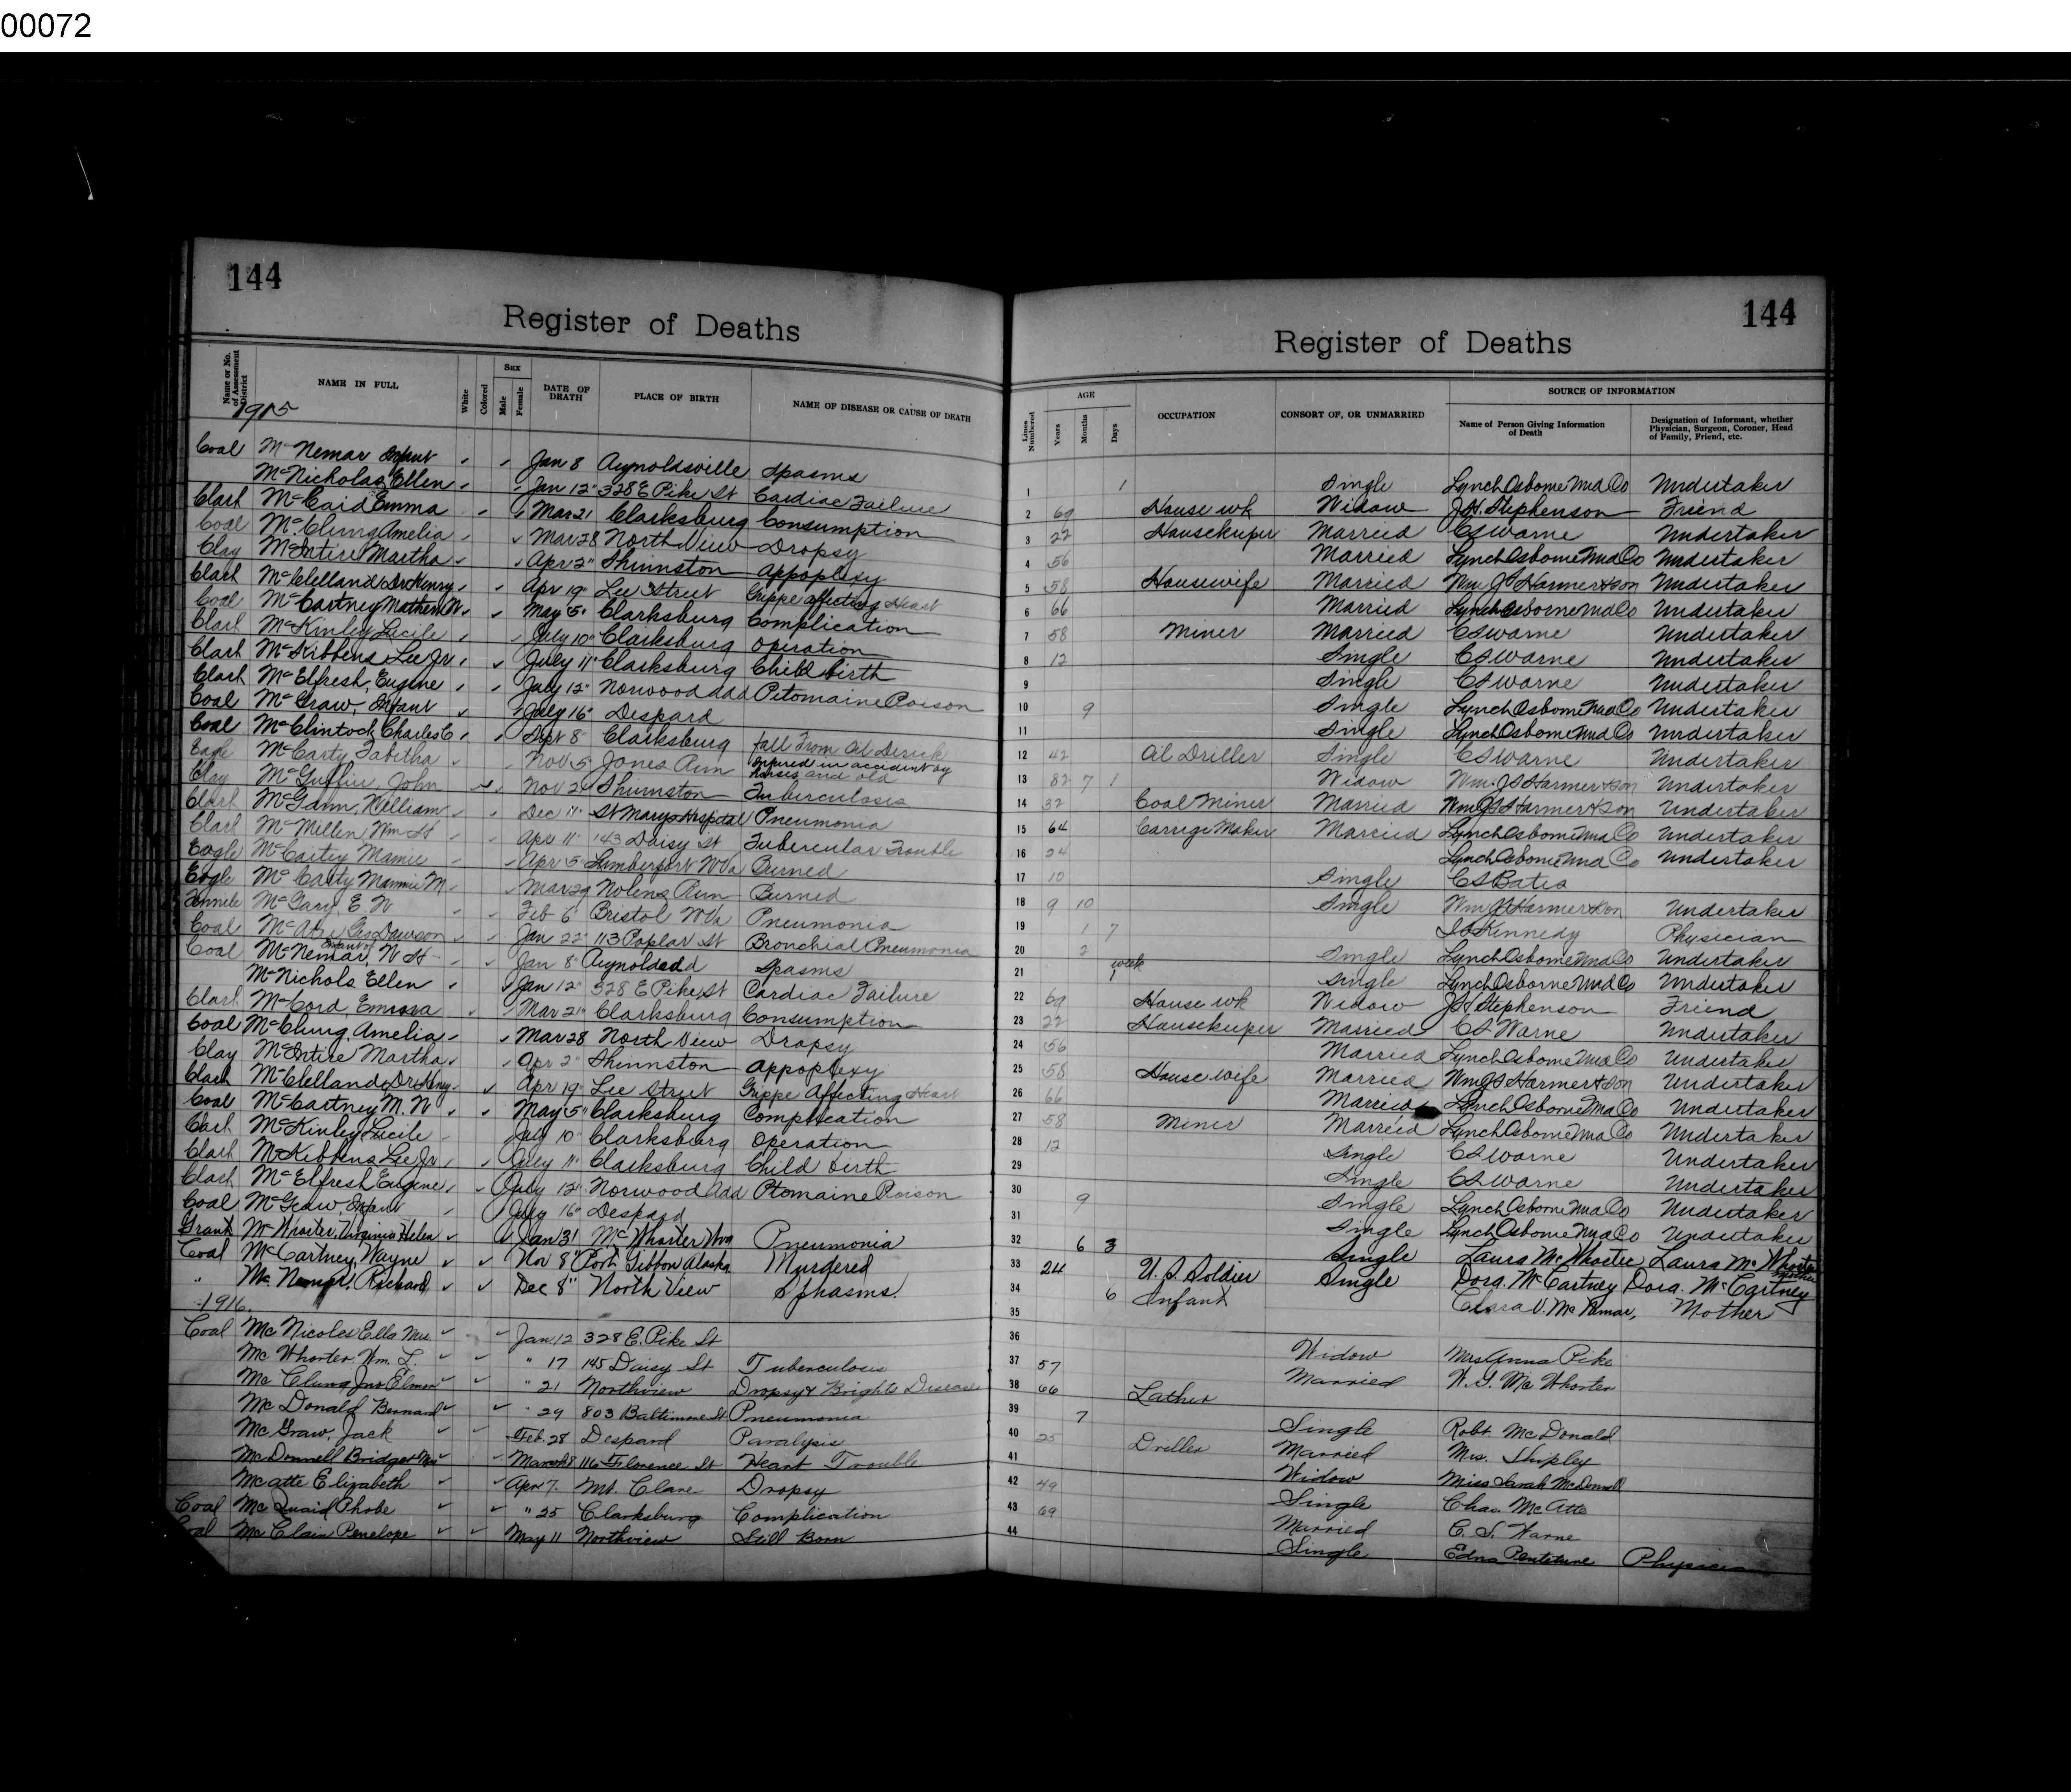 00072
144
Register of Deaths
Name or No. of Assessment District
NAME IN FULL
White
Colored
SEX
Male
Female
DATE OF DEATH
PLACE OF BIRTH
NAME OF DISEASE OR CAUSE OF DEATH
1915
Coal McNemar Infant Jan 8 Aynoldsville Spasms
McNicholas Ellen Jan 12" 328 E Pike St Cardiac Failure
Clark McCaid Emma Mar 21 Clarksburg Consumption
Coal McClung Amelia Mar 28 North View Dropsy
Clay McIntire Martha Apr 2" Shinnston Appoplexy
Clark McClelland Dr Henry Apr 19" Lee Street Grippe affecting Heart
Coal McCartney Mathew W. May 5" Clarksburg Complication
Clark McKinley Lucile July 10" Clarksburg Operation
Clark McKibbens Lee Jr July 11" Clarksburg Child birth
Clark McElfresh, Eugene July 12" Norwood Add Pitomaine Poison
Coal McGraw, Infant July 16" Despard
Coal McClintock Charles C. Sept 8" Clarksburg fall From Oil Derick
Eagle McCarty Tabitha Nov 5 Jones Run injured in accident by horses and old
Clay McGuffin John Nov 2 Shinnston Tuberculosis
Clark McGann, William Dec 11" St Marys Hospital Pneumonia
Clark McMillen, Wm H Apr 11" 143 Daisy St Tubercular Trouble
Eagle McCartey Mamie Apr 5" Lumberport W Va Burned
Eagle McCarty Mammie M. Mar 29 Nolens Run Burned
Tenmile McCary, E W Feb 6" Bristol W Va Pneumonia
Coal McAtee Geo Dawson Jan 22" 113 Poplar St Bronchial Pneumonia
Coal McNemar, Infant of W H Jan 8" Spasms
McNichols Ellen Jan 12" 328 E Pike St Cardiac Failure
Clark McCord, Emma Mar 21" Clarksburg Consumption
Coal McClung, Amelia Mar 28 North View Dropsy
Clay McIntire Martha Apr 2" Shinnston Appoplexy
Clark McClelland Dr Henry Apr 19" Lee Street Grippe Affecting Heart
Coal McCartney M. W May 5" Clarksburg Complication
Clark McKinley Lucile July 10" Clarksburg Operation
Clark McKibbens Lee Jr July 11" Clarksburg Child birth
Clark McElfresh Eugene July 12" Norwood Add Ptomaine Poison
Coal McGraw, Infant July 16" Despard
Grant McWhorter, Virginia Helen Jan 31 McWhorter Wva Pneumonia
Coal McCartney, Wayne Nov 8" Fort Gibbon Alaska Murdered
" McNemar, Richard Dec 8" North View Sphasms.
1916.
Coal McNicoles Ella Mrs. Jan. 12 328 E. Pike St
McWhorter Wm. L. " 17 145 Daisy St Tuberculosis
McClung Jno Elmer " 21 Northview Dropsy & Brights Disease
McDonald Bernard " 29 803 Baltimore St Pneumonia
McGraw, Jack Feb. 28 Despard Paralysis
McDonnell Bridget Mrs March 8 116 Florence St Heart Trouble
McAtte Elizabeth Apr 7. Mt. Clare Dropsy
Coal McQuaid Phobe " 25 Clarksburg Complication
Coal McClain Penelope May 11 Northview Still Born
144
Register of Deaths
Lines Numbered
AGE
Years
Months
Days
OCCUPATION
CONSORT OF, OR UNMARRIED
SOURCE OF INFORMATION
Name of Person Giving Information of Death
Designation of Informant, whether Physician, Surgeon, Coroner, Head of Family, Friend, etc.
1 1 Single Lynch Osborne Und Co Undertaker
2 69 House wk Widow J H Stephenson Friend
3 22 Housekeeper Married C S Warne Undertaker
4 56 Married Lynch Osborne Und Co Undertaker
5 58 Housewife Married Wm J S Harmer & Son Undertaker
6 66 Married Lynch Osborne Und Co Undertaker
7 58 Miner Married C S Warne Undertaker
8 12 Single C S Warne Undertaker
9 Single C S Warne Undertaker
10 9 Single Lynch Osborne Und Co Undertaker
11 Single Lynch Osborne Und Co Undertaker
12 42 Oil Driller Single C S Warne Undertaker
13 82 7 1 Widow Wm. J S Harmer & Son Undertaker
14 32 Coal Miner Married Wm J S Harmer & Son Undertaker
15 64 Carrige Maker Married Lynch Osborne Und Co Undertaker
16 24 Lynch Osborne Und Co Undertaker
17 10 Single C S Bates
18 9 10 Single Wm J S Harmer & Son Undertaker
19 1 7 Kennedy Physician
20 2 Single Lynch Osborne Und Co Undertaker
21 1 week Single Lynch Osborne Und Co Undertaker
22 69 House wk Widow J H Stephenson Friend
23 22 Housekeeper Married C S Warne Undertaker
24 56 Married Lynch Osborne Und Co Undertaker
25 58 House wife Married Wm J S Harmer & Son Undertaker
26 66 Married Lynch Osborne Und Co Undertaker
27 58 Miner Married Lynch Osborne Und Co Undertaker
28 12 Single C S Warne Undertaker
29 Single C S Warne Undertaker
30 9 Single Lynch Osborne Und Co Undertaker
31 Single Lynch Osborne Und Co Undertaker
32 6 3 Single Laura McWhorter Laura McWhorter Mother
33 24 U. S. Soldier Single Dora. McCartney Dora. McCartney
34 6 Infant Clara V. McNemar, Mother
35
36 Widow Mrs Anna Pike
37 57 Married W. G. McWhorter
38 66 Lather
39 7 Single Robt. McDonald
40 25 Driller Married Mrs. Shipley
41 Widow Miss Sarah McDonnell
42 49 Single Chas. McAtte
43 69 Married C. S. Warne
44 Single Edna Physician